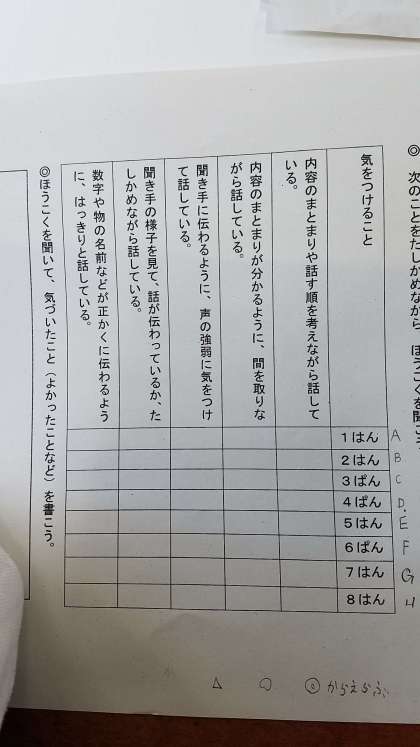 ◎ 次のことをたしかめながら、ほうこくを聞こう。
気をつけること
1はん
2はん
3ぱん
4ぱん
5はん
6ぱん
7はん
8はん
A
B
C
D
E
F
G
H
内容のまとまりや話す順を考えながら話して
いる。
内容のまとまりが分かるように、間を取りな
がら話している。
聞き手に伝わるように、声の強弱に気をつけ
て話している。
聞き手の様子を見て、話が伝わっているか、た
しかめながら話している。
数字や物の名前などが正かくに伝わるよう
に、はっきりと話している。
◎ほうこくを聞いて、気づいたこと（よかったことなど）を書こう。
△ ○ ◎ からえらぶ